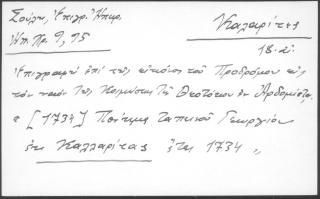 Σούλη, Ἐπιγρ. Ἠπειρ.
Ἠπ. Χρ. 9, 95
Καλαρίτης
18.α.
Ἐπιγραφὴ ἐπὶ τῆς εἰκόνος τοῦ Προδρόμου εἰς
τὸν ναὸν τῆς Κοιμήσεως τῆς Θεοτόκου ἐν Ἀρδομίστῃ
[1734] Ποίημα ταπεινοῦ Γεωργίου
ἐκ Καλλαρίτας ἔτει 1734 „